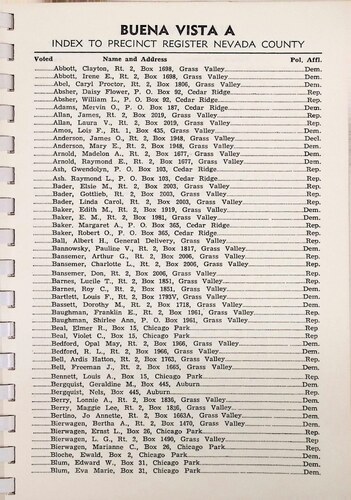 BUENA VISTA A
INDEX TO PRECINCT REGISTER NEVADA COUNTY
Voted Name and Address Pol. Affl.
Abbott, Clayton, Rt. 2, Box 1698, Grass Valley Dem.
Abbott, Irene E., Rt. 2, Box 1698, Grass Valley Dem.
Abel, Caryl Proctor, Rt. 2, Box 1806, Grass Valley Dem.
Absher, Daisy Flower, P. O. Box 92, Cedar Ridge Rep.
Absher, William L., P. O. Box 92, Cedar Ridge Rep.
Adams, Mervin O., P. O. Box 187, Cedar Ridge Dem.
Allan, James, Rt. 2, Box 2019, Grass Valley Rep.
Allan, Laura V., Rt. 2, Box 2019, Grass Valley Rep.
Amos, Lois F., Rt. 1, Box 435, Grass Valley Dem.
Anderson, James O., Rt. 2, Box 1948, Grass Valley Decl.
Anderson, Mary E., Rt. 2, Box 1948, Grass Valley Dem.
Arnold, Madelon A., Rt. 2, Box 1677, Grass Valley Dem.
Arnold, Raymond E., Rt. 2, Box 1677, Grass Valley Dem.
Ash, Gwendolyn, P. O. Box 103, Cedar Ridge Rep.
Ash, Raymond L., P. O. Box 103, Cedar Ridge Rep.
Bader, Elsie M., Rt. 2, Box 2003, Grass Valley Rep.
Bader, Gottlieb, Rt. 2, Box 2003, Grass Valley Rep.
Bader, Linda Carol, Rt. 2, Box 2003, Grass Valley Rep.
Baker, Edith M., Rt. 2, Box 1919, Grass Valley Dem.
Baker, E. M., Rt. 2, Box 1981, Grass Valley Dem.
Baker, Margaret A., P. O. Box 365, Cedar Ridge Rep.
Baker, Robert O., P. O. Box 365, Cedar Ridge Rep.
Ball, Albert H., General Delivery, Grass Valley Rep.
Bannowsky, Pauline V., Rt. 2, Box 1817, Grass Valley Dem.
Bansemer, Arthur G., Rt. 2, Box 2006, Grass Valley Rep.
Bansemer, Charlotte L., Rt. 2, Box 2006, Grass Valley Rep.
Bansemer, Don, Rt. 2, Box 2006, Grass Valley Rep.
Barnes, Lucile T., Rt. 2, Box 1851, Grass Valley Rep.
Barnes, Roy C., Rt. 2, Box 1851, Grass Valley Dem.
Bartlett, Louis F., Rt. 2, Box 1793V, Grass Valley Dem.
Bassett, Dorothy M., Rt. 2, Box 1718, Grass Valley Dem.
Baughman, Franklin E., Rt. 2, Box 1961, Grass Valley Rep.
Baughman, Shirlee Ann, P. O. Box 1961, Grass Valley Rep.
Beal, Elmer R., Box 15, Chicago Park Rep
Beal, Violet C., Box 15, Chicago Park Rep
Bedford, Opal May, Rt. 2, Box 1966, Grass Valley Dem.
Bedford, R. L., Rt. 2, Box 1966, Grass Valley Dem.
Bell, Ardis Hatton, Rt. 2, Box 1763, Grass Valley Rep.
Bell, Freeman J., Rt. 2, Box 1665, Grass Valley Dem.
Bennett, Louis A., Box 15, Chicago Park Rep.
Bergquist, Geraldine M., Box 445, Auburn Dem.
Bergquist, Nels, Box 445, Auburn Dem.
Berry, Lonnie A., Rt. 2, Box 1836, Grass Valley Dem.
Berry, Maggie Lee, Rt. 2, Box 1836, Grass Valley Dem.
Bertino, Jo Annette, Rt. 2, Box 1663A, Grass Valley Dem.
Bierwagen, Bertha A., Rt. 2, Box 1470, Grass Valley Dem.
Bierwagen, Ernst L., Box 26, Chicago Park Rep.
Bierwagen, L. G., Rt. 2, Box 1490, Grass Valley Rep
Bierwagen, Marianne C., Box 26, Chicago Park Rep.
Bloche, Ewald, Box 2, Chicago Park Dem.
Blum, Edward W., Box 31, Chicago Park Dem.
Blum, Eva Marie, Box 31, Chicago Park Dem.